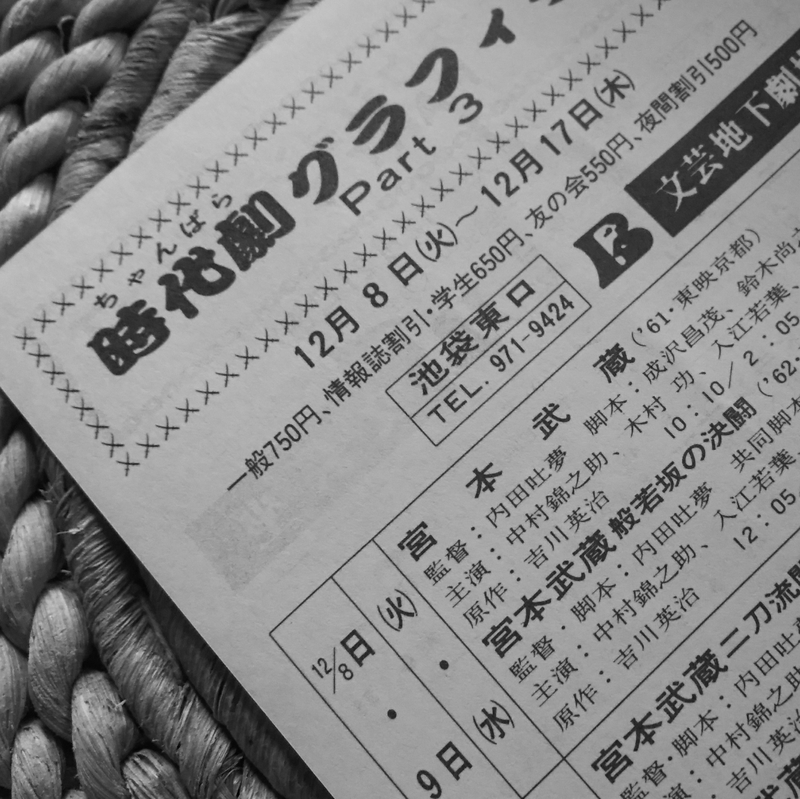 ちゃんばら
時代劇グラフィ
Part 3
12月8日(火)～12月17日(木)
一般750円、情報誌割引・学生650円、友の会550円、夜間割引500円
池袋東口
TEL. 971-9424
B
文芸地下劇場
12/8日(火)
・
9日(水)
宮本武蔵('61・東映京都)
監督：内田吐夢 脚本：成沢昌茂、鈴木尚
主演：中村錦之助、木村功、入江若葉、
原作：吉川英治 10:10/2:05
宮本武蔵般若坂の決闘('62・
監督・脚本：内田吐夢 共同脚本
主演：中村錦之助、入江若葉、
原作：吉川英治 12:05
宮本武蔵二刀流開
監督・脚本：内田吐
主演：中村錦之
原作：吉川英
宮本武蔵